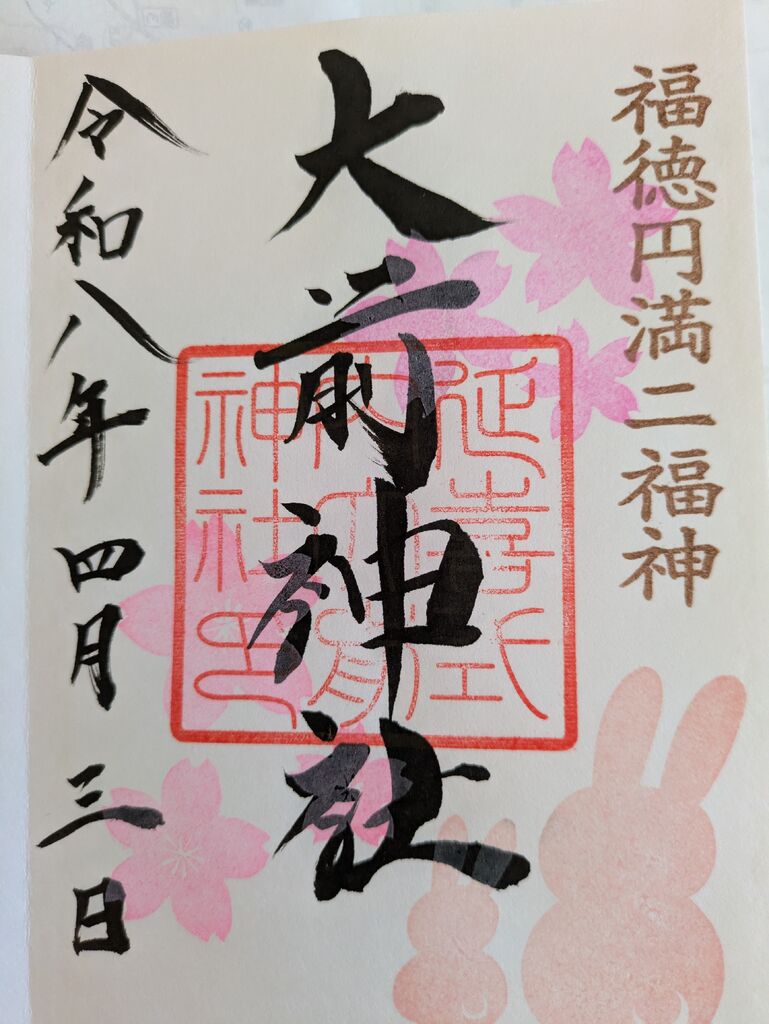 福徳円満二福神
大前神社
延喜式
内大前
神社印
令和八年四月三日